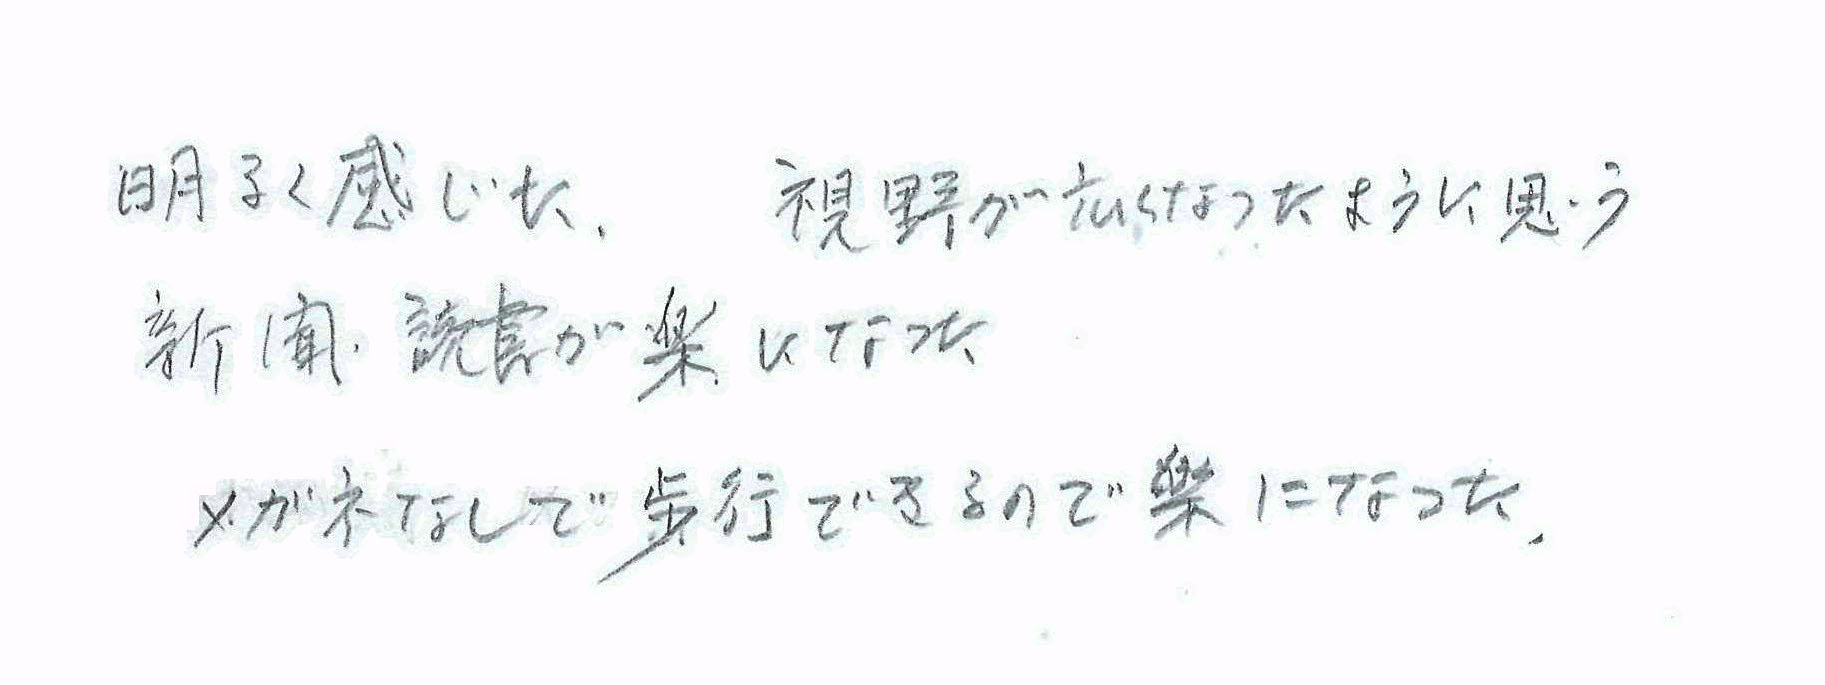 明るく感じた、 視野が広くなったように思う
新聞・読書が楽になった
メガネなしで歩行できるので楽になった、